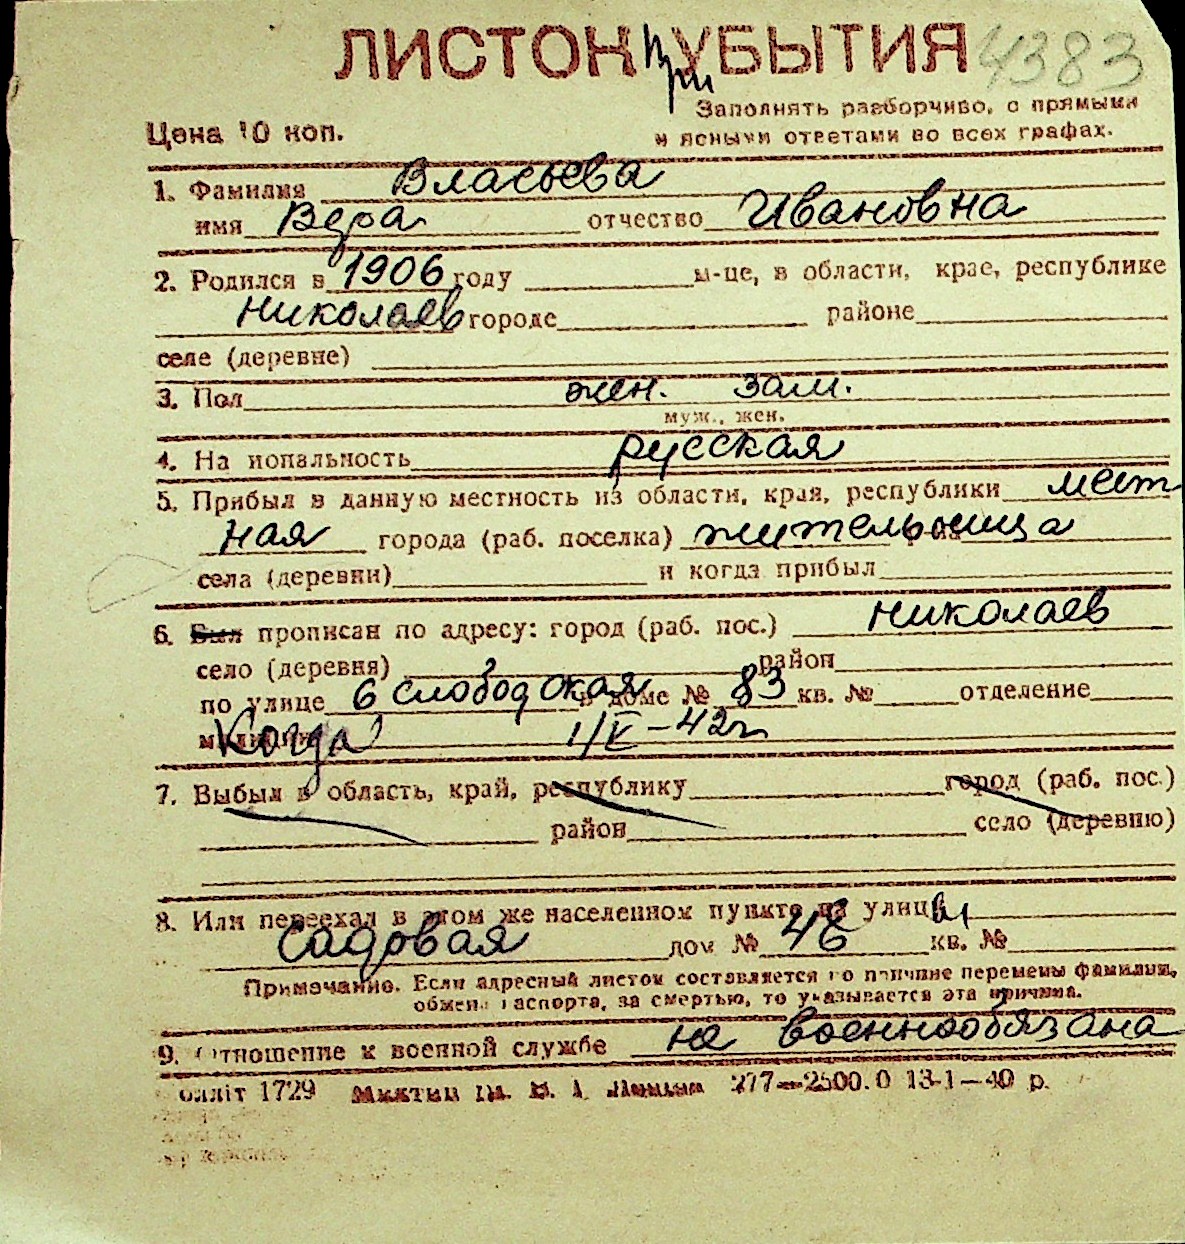 ЛИСТОК при УБЫТИЯ 4383
Заполнять разборчиво, с прямыми
Цена 10 коп. и ясными ответами во всех графах.
1. Фамилия Власьева
имя Вера отчество Ивановна
2. Родился в 1906 году м-це, в области, крае, республике
Николаев городе районе
селе (деревне)
3. Пол жен. зам.
муж., жен.
4. На иональность русская
5. Прибыл в данную местность из области, края, республики мест
ная города (раб. поселка) жительница
села (деревни) и когда прибыл
6. Был прописан по адресу: город (раб. пос.) Николаев
село (деревня) район
по улице 6 слободская в доме № 83 кв. № отделение
Когда 1/V-42г
7. Выбыл в область, край, республику город (раб. пос.)
район село (деревню)
8. Или переехал в этом же населенном пункте на улицы
Садовая дом № 46 кв. №
Примечание. Если адресный листок составляется по причине перемены фамилии,
обмена паспорта, за смертью, то указывается эта причина.
9. Отношение к военной службе не военнообязана
олліт 1729 277—2500.0 13-1—40 р.